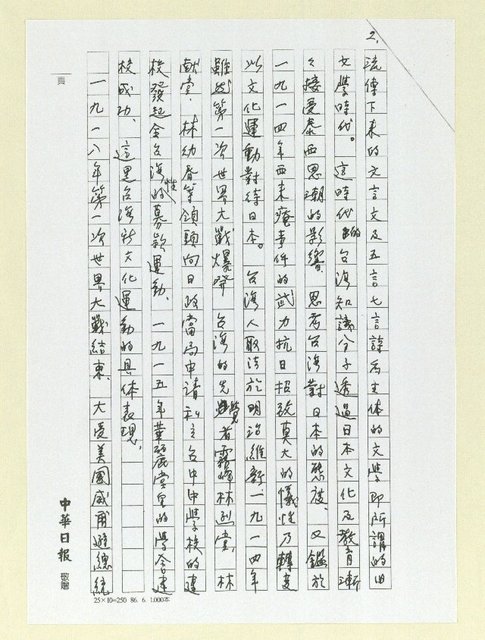 2.
流傳下來的文言文及五言七言詩爲主体的文學即所謂的旧
文學時代。這時代的台湾知識分子透過日本文化及教育漸
々接受泰西思潮的影響，思考台湾對日本的態度。又鑑於
一九一四年西來庵事件的武力抗日招致莫大的犧牲乃轉変
以文化運動對待日本。台湾人取法於明治維新一九一四年
雖然第一次世界大戰爆發，台湾的先覺者霧峰林烈堂、林
献堂、林幼春等領頭向日政當局申請私立台中中學校的建
校發起全台湾性的募款運動、一九一五年華麗堂皇的學舍建
校成功、這是台湾新文化運動的具体表現、
一九一八年第一次世界大戰結束、大受美國威爾遜總統
頁
中華日報 敬贈
25×10=250 86. 6. 1,000本